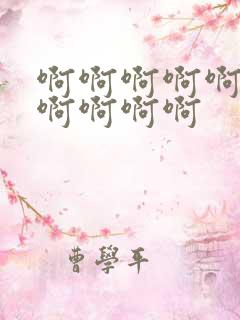 啊啊啊啊啊
啊啊啊啊
曹學平